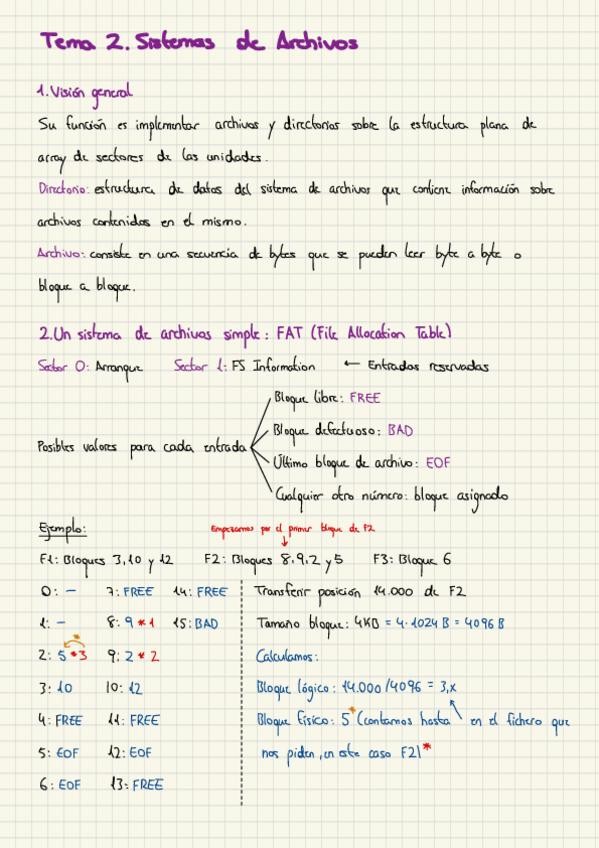 Tema 2. Sistemas de Archivos
1. Visión general
Su función es implementar archivos y directorios sobre la estructura plana de
array de sectores de las unidades.
Directorio: estructura de datos del sistema de archivos que contiene información sobre
archivos contenidos en el mismo.
Archivo: consiste en una secuencia de bytes que se pueden leer byte a byte o
bloque a bloque.
2. Un sistema de archivos simple: FAT (File Allocation Table)
Sector 0: Arranque Sector 1: FS Information ← Entradas reservadas
Bloque libre: FREE
Bloque defectuoso: BAD
Posibles valores para cada entrada
Último bloque de archivo: EOF
Cualquier otro número: bloque asignado
Ejemplo:
Empezamos por el primer bloque de F2
F1: Bloques 3,10 y 12 F2: Bloques 8,9,2 y 5 F3: Bloque 6
0: - 7: FREE 14: FREE Transferir posición 14.000 de F2
1: - 8: 9 *1 15: BAD Tamaño bloque: 4KB = 4·1024 B = 4096 B
*
2: 5 *3 9: 2 * 2 Calculamos:
3: 10 10: 12 Bloque lógico: 14.000/4096 = 3,x
4: FREE 11: FREE Bloque físico: 5* (contamos hasta en el fichero que
5: EOF 12: EOF nos piden, en este caso F2)*
6: EOF 13: FREE